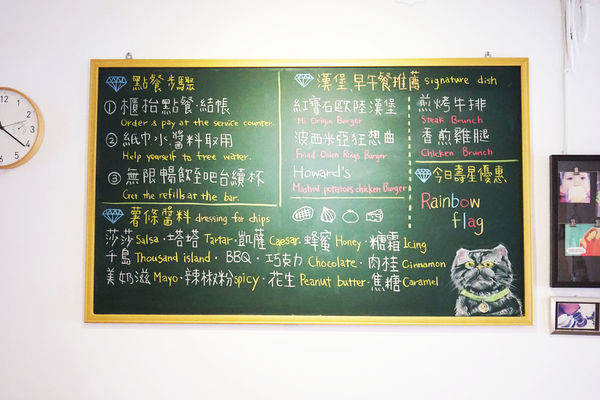 點餐步驟
①櫃抬點餐·結帳
Order & pay at the service counter.
②紙巾·水·醬料取用
Help yourself to free water.
③無限暢飲至吧台續杯
Get the refills at the bar.
漢堡.早午餐推薦 signature dish
紅寶石歐陸漢堡
Mi Origin Burger
波西米亞狂想曲
Fried Onion Rings Burger
Howard's
Mashed potatoes chicken Burger
煎烤牛排
Steak Brunch
香煎雞腿
Chicken Brunch
今日壽星優惠
Rainbow
flag
薯條醬料 dressing for chips
莎莎 Salsa·塔塔 Tartar·凱薩 Caesar·蜂蜜 Honey·糖霜 Icing
千島 Thousand island·BBQ·巧克力 Chocolate·肉桂 Cinnamon
美奶滋 Mayo·辣椒粉 spicy·花生 Peanut butter·焦糖 Caramel